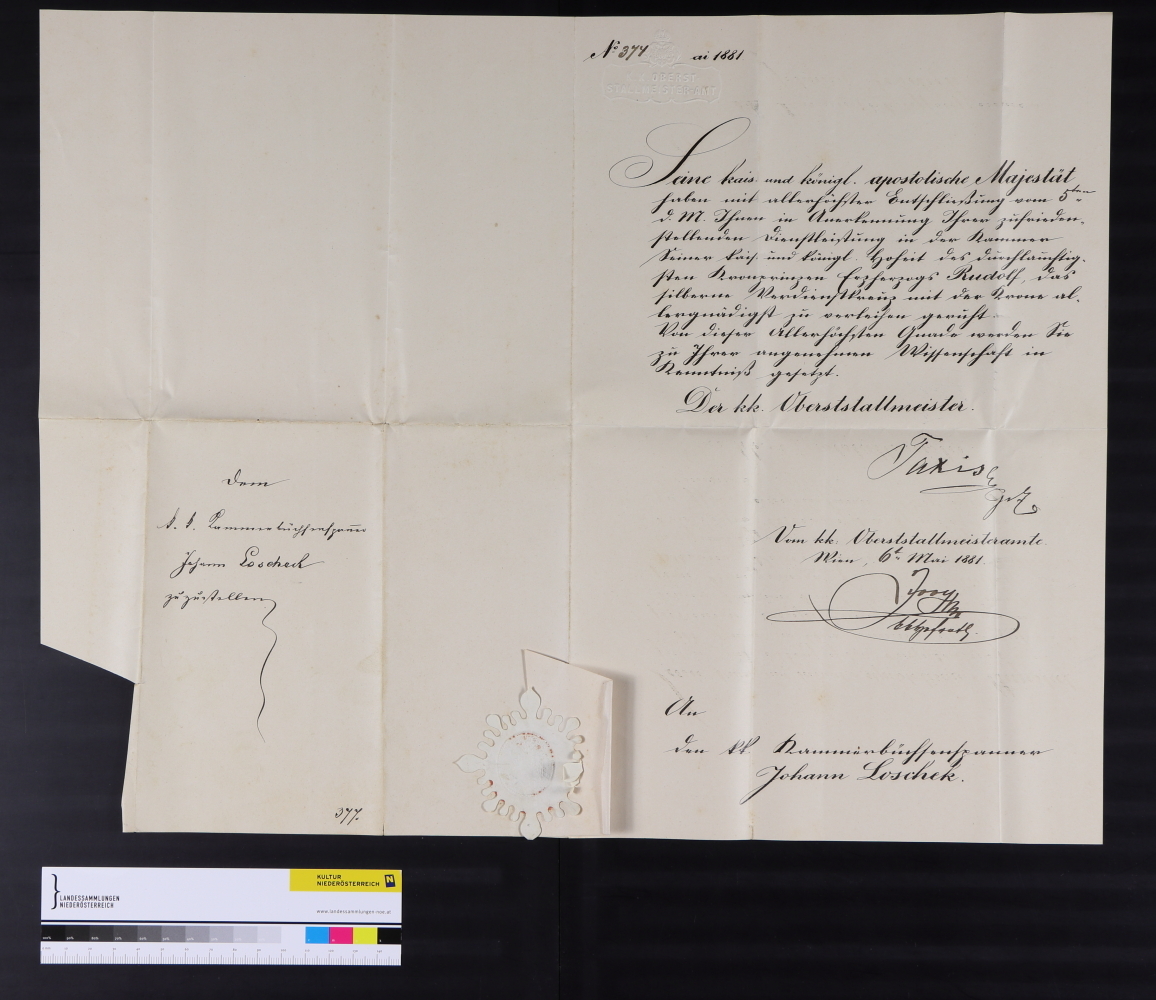 № 377 ai 1881
K. K. OBERST-
STALLMEISTERAMT
Seine kais. und königl. apostolische Majestät
haben mit allerhöchster Entschließung vom 5ten
d. M. Ihnen in Anerkennung Ihrer zufrieden-
stellenden Dienstleistung in der Kammer
Seiner kais. und königl. Hoheit des durchlauchtig-
sten Kronprinzen Erzherzogs Rudolf, das
silberne Verdienstkreuz mit der Krone al-
lergnädigst zu verleihen geruht.
Von dieser Allerhöchsten Gnade werden Sie
zu Ihrer angenehmen Wissenschaft in
Kenntniß gesetzt.
Der kk. Oberststallmeister.
Taxis
Vom kk. Oberststallmeisteramte.
Wien, 6t. Mai 1881.
An
den kk Kammerbüchsenspanner
Johann Loschek.
Dem
k. k. Kammerbüchsenspanner
Johann Loscheck
zuzustellen
377.
LANDESSAMMLUNGEN
NIEDERÖSTERREICH
KULTUR
NIEDERÖSTERREICH
www.landessammlungen-noe.at